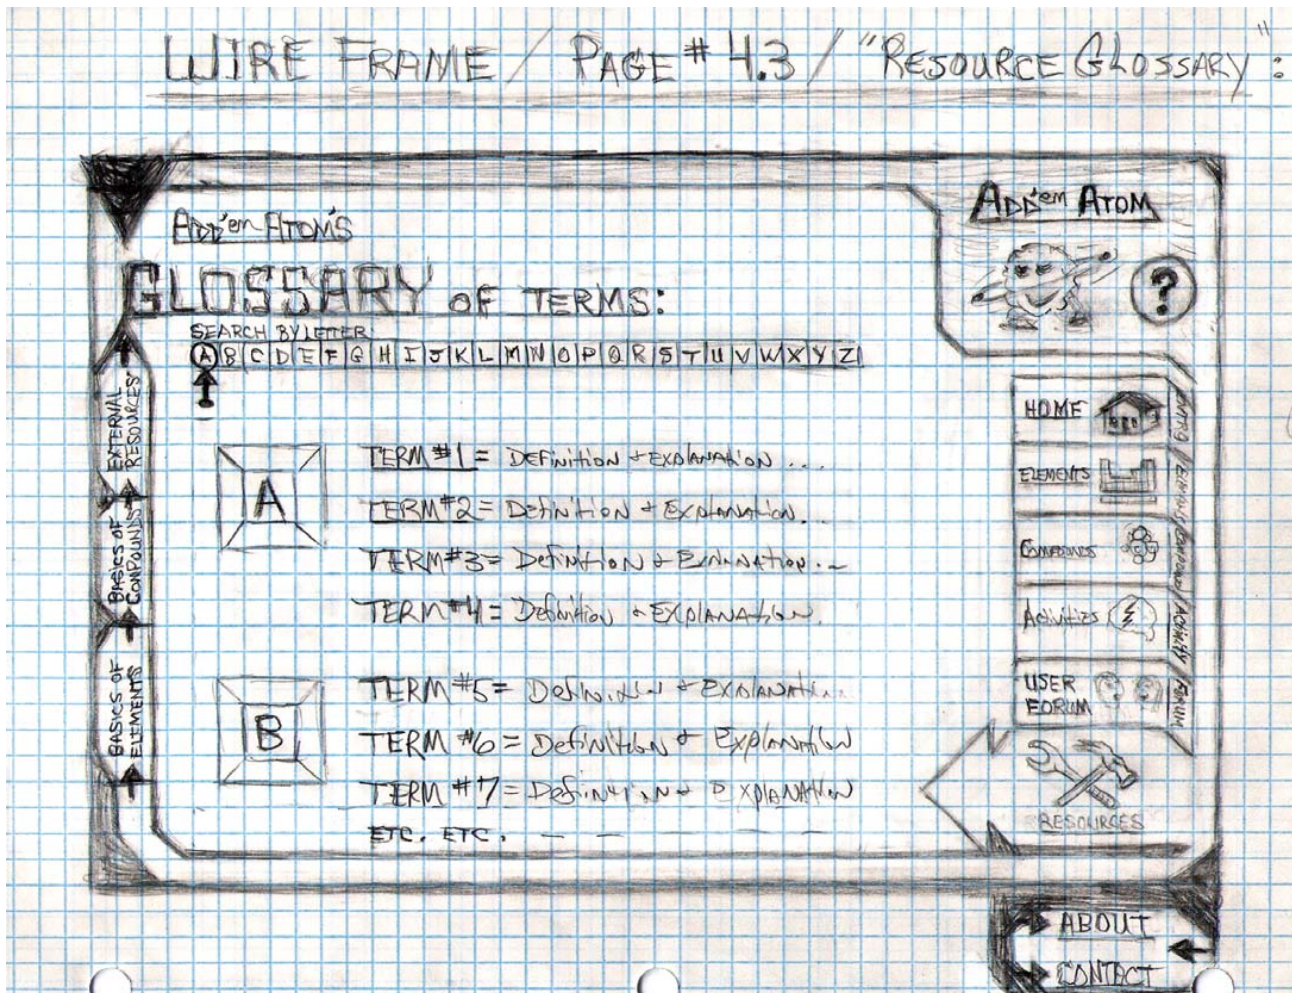 WIRE FRAME / PAGE # 4.3 / "RESOURCE GLOSSARY":
ADD'em ATOM
ADD'em ATOM'S
GLOSSARY OF TERMS:
?
SEARCH BY LETTER:
A B C D E F G H I J K L M N O P Q R S T U V W X Y Z
EXTERNAL RESOURCES
BASICS OF COMPOUNDS
BASICS OF ELEMENTS
A
TERM #1 = DEFINITION & EXPLANATION ...
TERM #2 = DEFINITION & EXPLANATION...
TERM #3 = DEFINITION & EXPLANATION...
TERM #4 = DEFINITION & EXPLANATION.
B
TERM #5 = DEFINITION & EXPLANATION...
TERM #6 = DEFINITION & EXPLANATION
TERM #7 = DEFINITION & EXPLANATION
ETC. ETC.
HOME
ELEMENTS
COMPOUNDS
ACTIVITIES
USER
FORUM
ACTIVITY / FORUM
RESOURCES
ABOUT
CONTACT